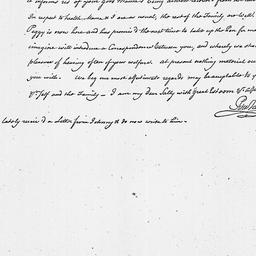 it informs us of your good Mama's being
In respect to health, Mama & I are as usual, the rest of the Family are well
Peggy is now here and has promised the next time to take up the Pen for me
imagine will introduce a Correspondence between you, and whereby we shall
pleasure of hearing often of your welfare. At present nothing material
you with. We beg our most affectionate regards may be acceptable to
yr self and the Family — I am my dear Sally with Great Esteem
lately receiv'd a Letter from Johnny & do now write to him.